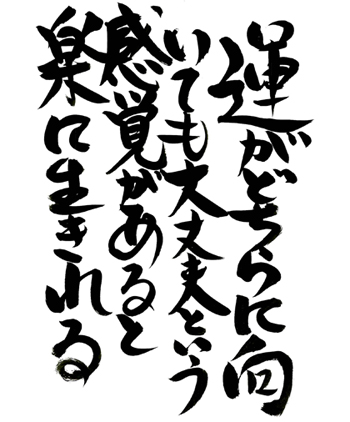 運がどちらに向
いても大丈夫という
感覚があると
楽に生きれる